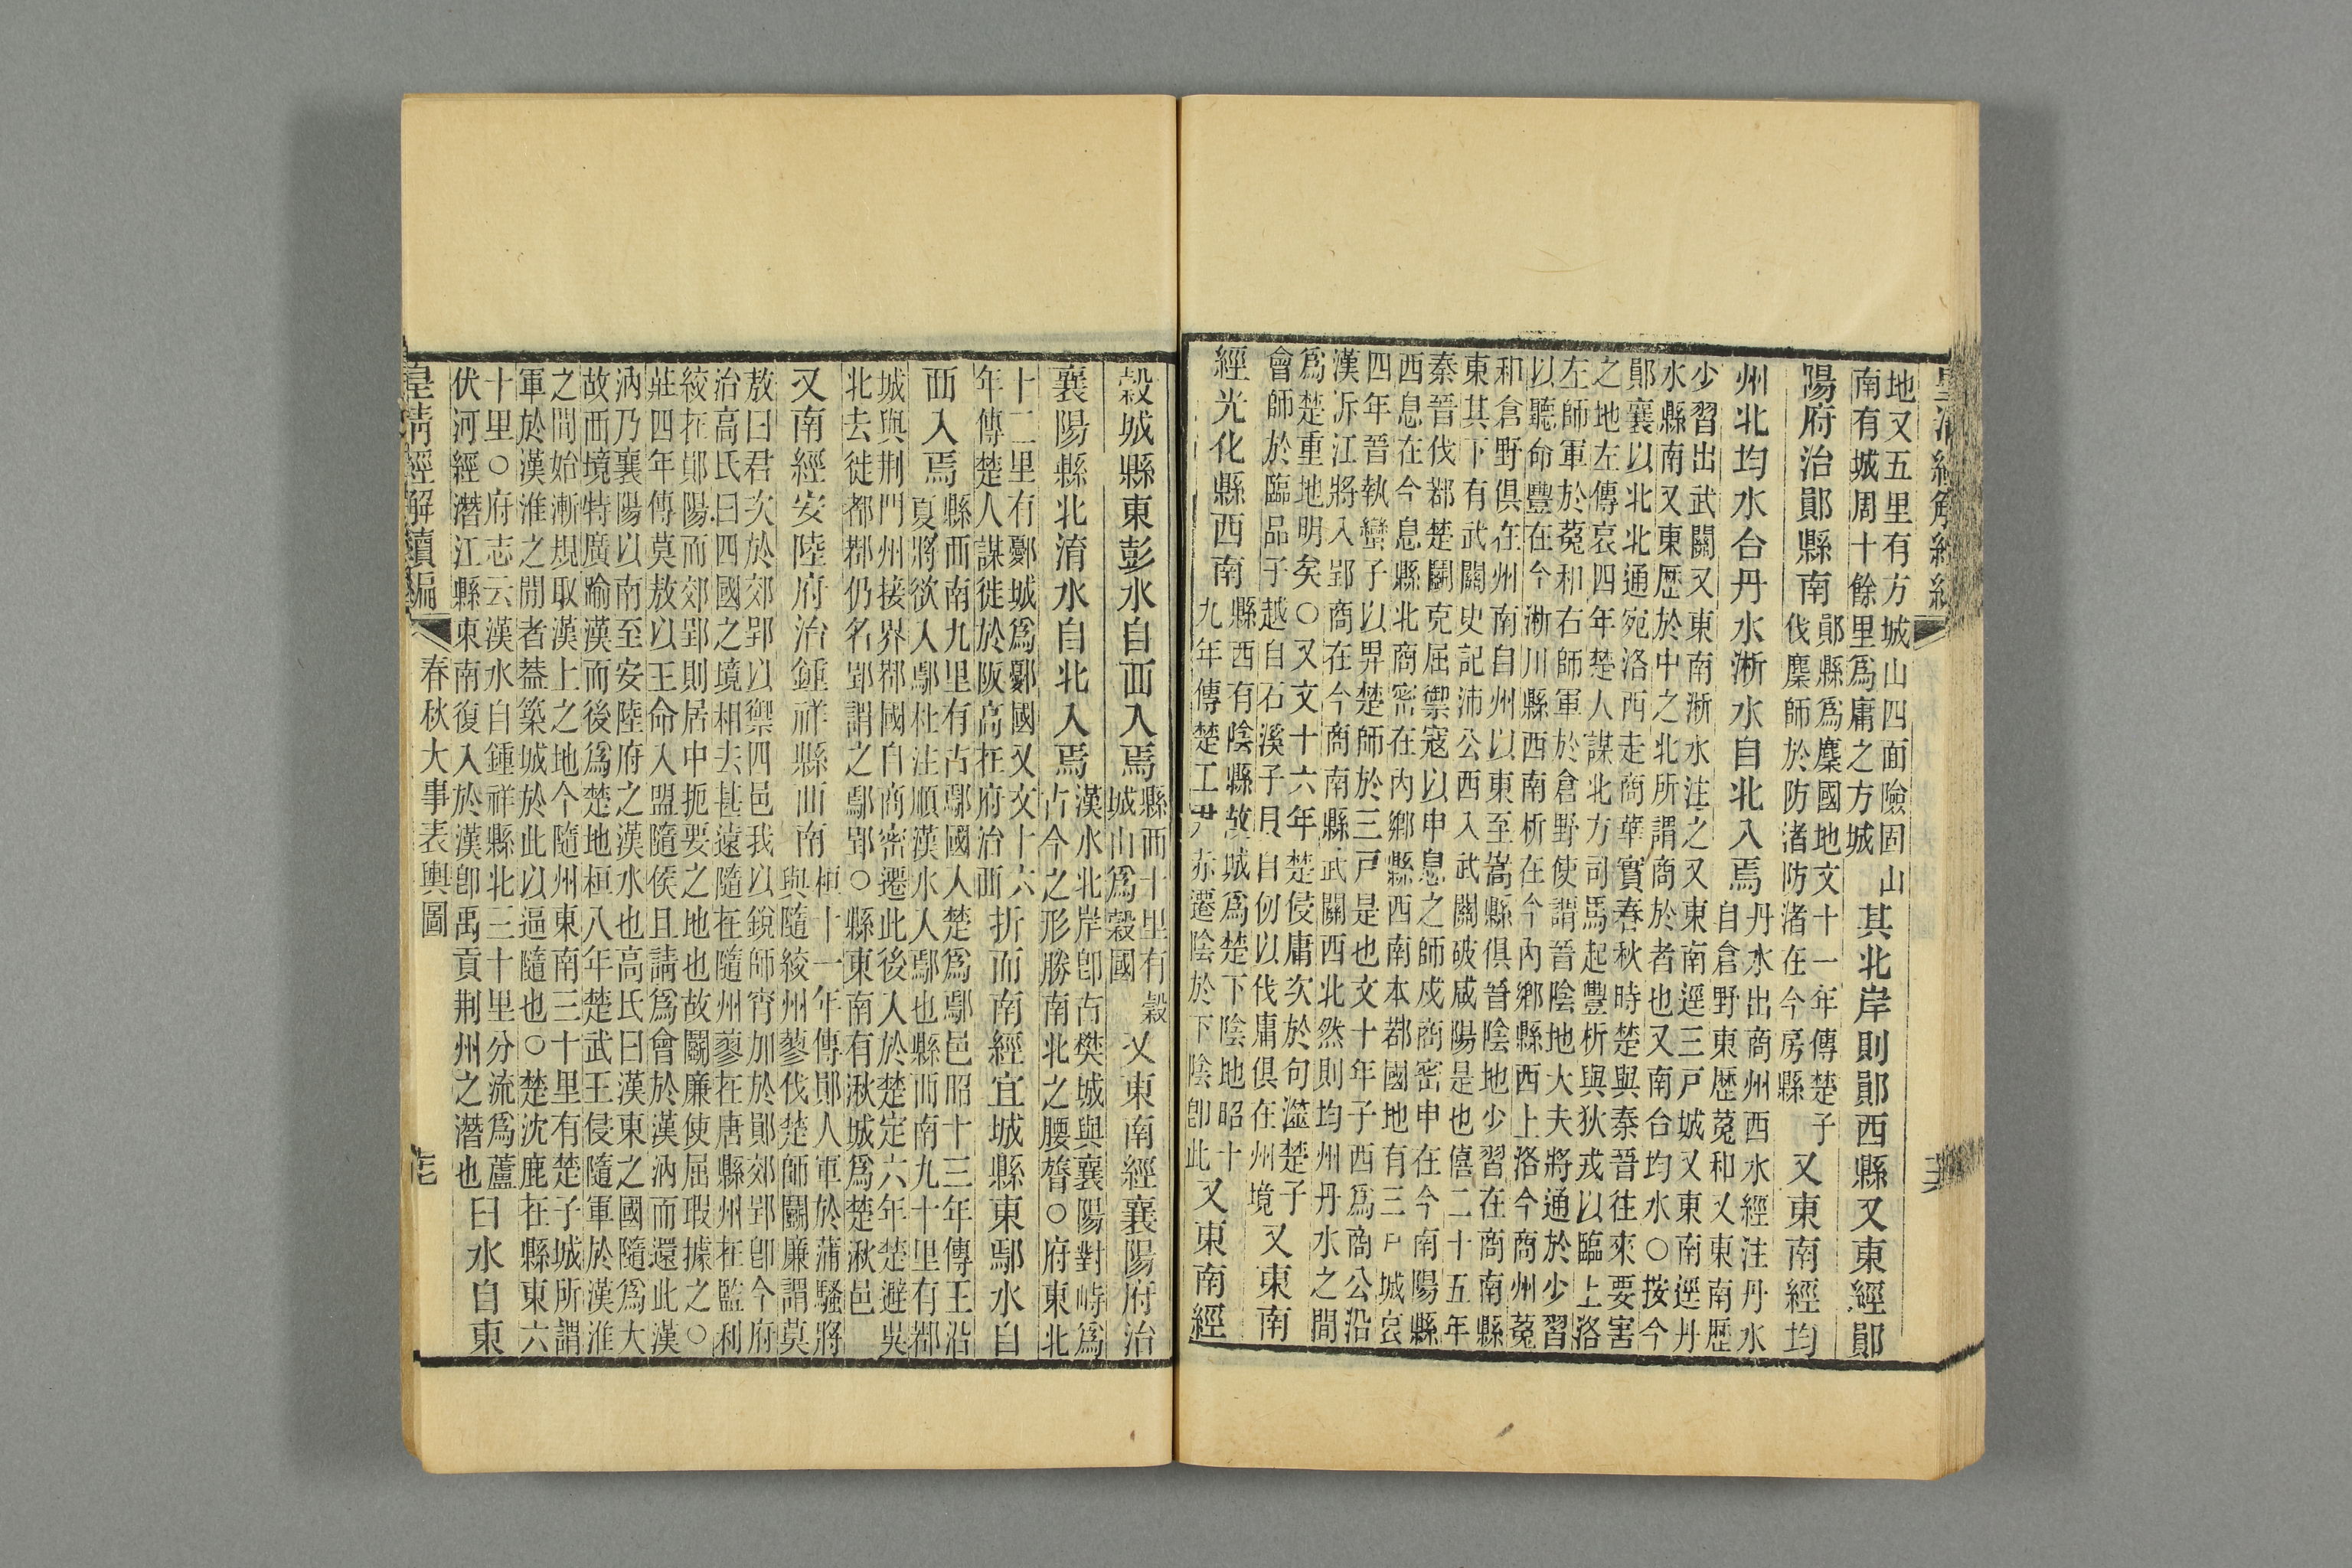 地又五里有方城山四面險固山
南有城周十餘里爲庸之方城
其北岸則鄖西縣又東經鄖
陽府治鄖縣南
鄖縣爲麇國地文十一年傳楚子
伐麇師於防渚防渚在今房縣
又東南經均
州北均水台丹水淅水自北入焉
丹水出商州西水經注丹水
自倉野東歷菟和又東南歷
少習出武關又東南淅水注之又東南逕三戸城又東南逕丹
水縣南又東歷於中之北所謂商於者也又南台均水○按今
鄖襄以北北通宛洛西走商華實春秋時楚與秦晉往來要害
之地左傳哀四年楚人謀北方司馬起豐析與狄戎以臨上洛
左師軍於菟和右師軍於倉野使謂晉陰地大夫將通於少習
以聽命豐在今淅川縣西南析在今內鄉縣西上洛今商州菟
和倉野俱在州南自州以東至嵩縣俱晉陰地少習在商南縣
東其下有武關史記沛公西入武關破咸陽是也僖二十五年
秦晉伐鄀楚鬭克屈禦寇以申息之師戍商密申在今南陽縣
西息在今息縣北商密在內鄉縣西南本鄀國地有三戸城哀
四年晉執蠻子以畀楚師於三戸是也文十年子西爲商公沿
漢泝江將入郢商在今商南縣武關西北然則均州丹水之間
爲楚重地明矣○又文十六年楚侵庸次於句澨楚子
會師於臨品子越自石溪子貝自仞以伐庸俱在州境
又東南
經光化縣西南
縣西有陰縣故城爲楚下陰地昭十
九年傳楚工尹赤遷陰於下陰卽此
又東南經
穀城縣東彭水自西入焉
縣西十里有穀
城山爲穀國
又東南經襄陽府治
襄陽縣北淯水自北入焉
漢水北岸卽古樊城與襄陽對峙爲
古今之形勝南北之腰膂○府東北
十二里有鄾城爲鄾國又文十六
年傳楚人謀徙於阪高在府治西
折而南經宜城縣東鄢水自
西入焉
縣西南九里有古鄢國人楚爲鄢邑昭十三年傳王沿
夏將欲入鄢杜注順漢水入鄢也縣西南九十里有鄀
城與荆門州接界鄀國自商密遷此後入於楚定六年楚避吳
北去徙都鄀仍名郢謂之鄢郢○縣東南有湫城爲楚湫邑
又南經安陸府治鍾祥縣西南
桓十一年傳鄖人軍於蒲騷將
與隨絞州蓼伐楚師鬭廉謂莫
敖曰君次於郊郢以禦四邑我以銳師宵加於鄖郊郢卽今府
治高氏曰四國之境相去甚遠隨在隨州蓼在唐縣州在監利
絞在鄖陽而郊郢則居中扼要之地也故鬭廉使屈瑕據之○
莊四年傳莫敖以王命入盟隨侯且請爲會於漢汭而還此漢
汭乃襄陽以南至安陸府之漢水也高氏曰漢東之國隨爲大
故西境特廣踰漢而後爲楚地桓八年楚武王侵隨軍於漢淮
之間始漸規取漢上之地今隨州東南三十里有楚子城所謂
軍於漢淮之間者葢築城於此以逼隨也○楚沈鹿在縣東六
十里○府志云漢水自鍾祥縣北三十里分流爲蘆
伏河經潛江縣東南復入於漢卽禹貢荆州之潛也
曰水自東
皇清經解續編
春秋大事表輿圖